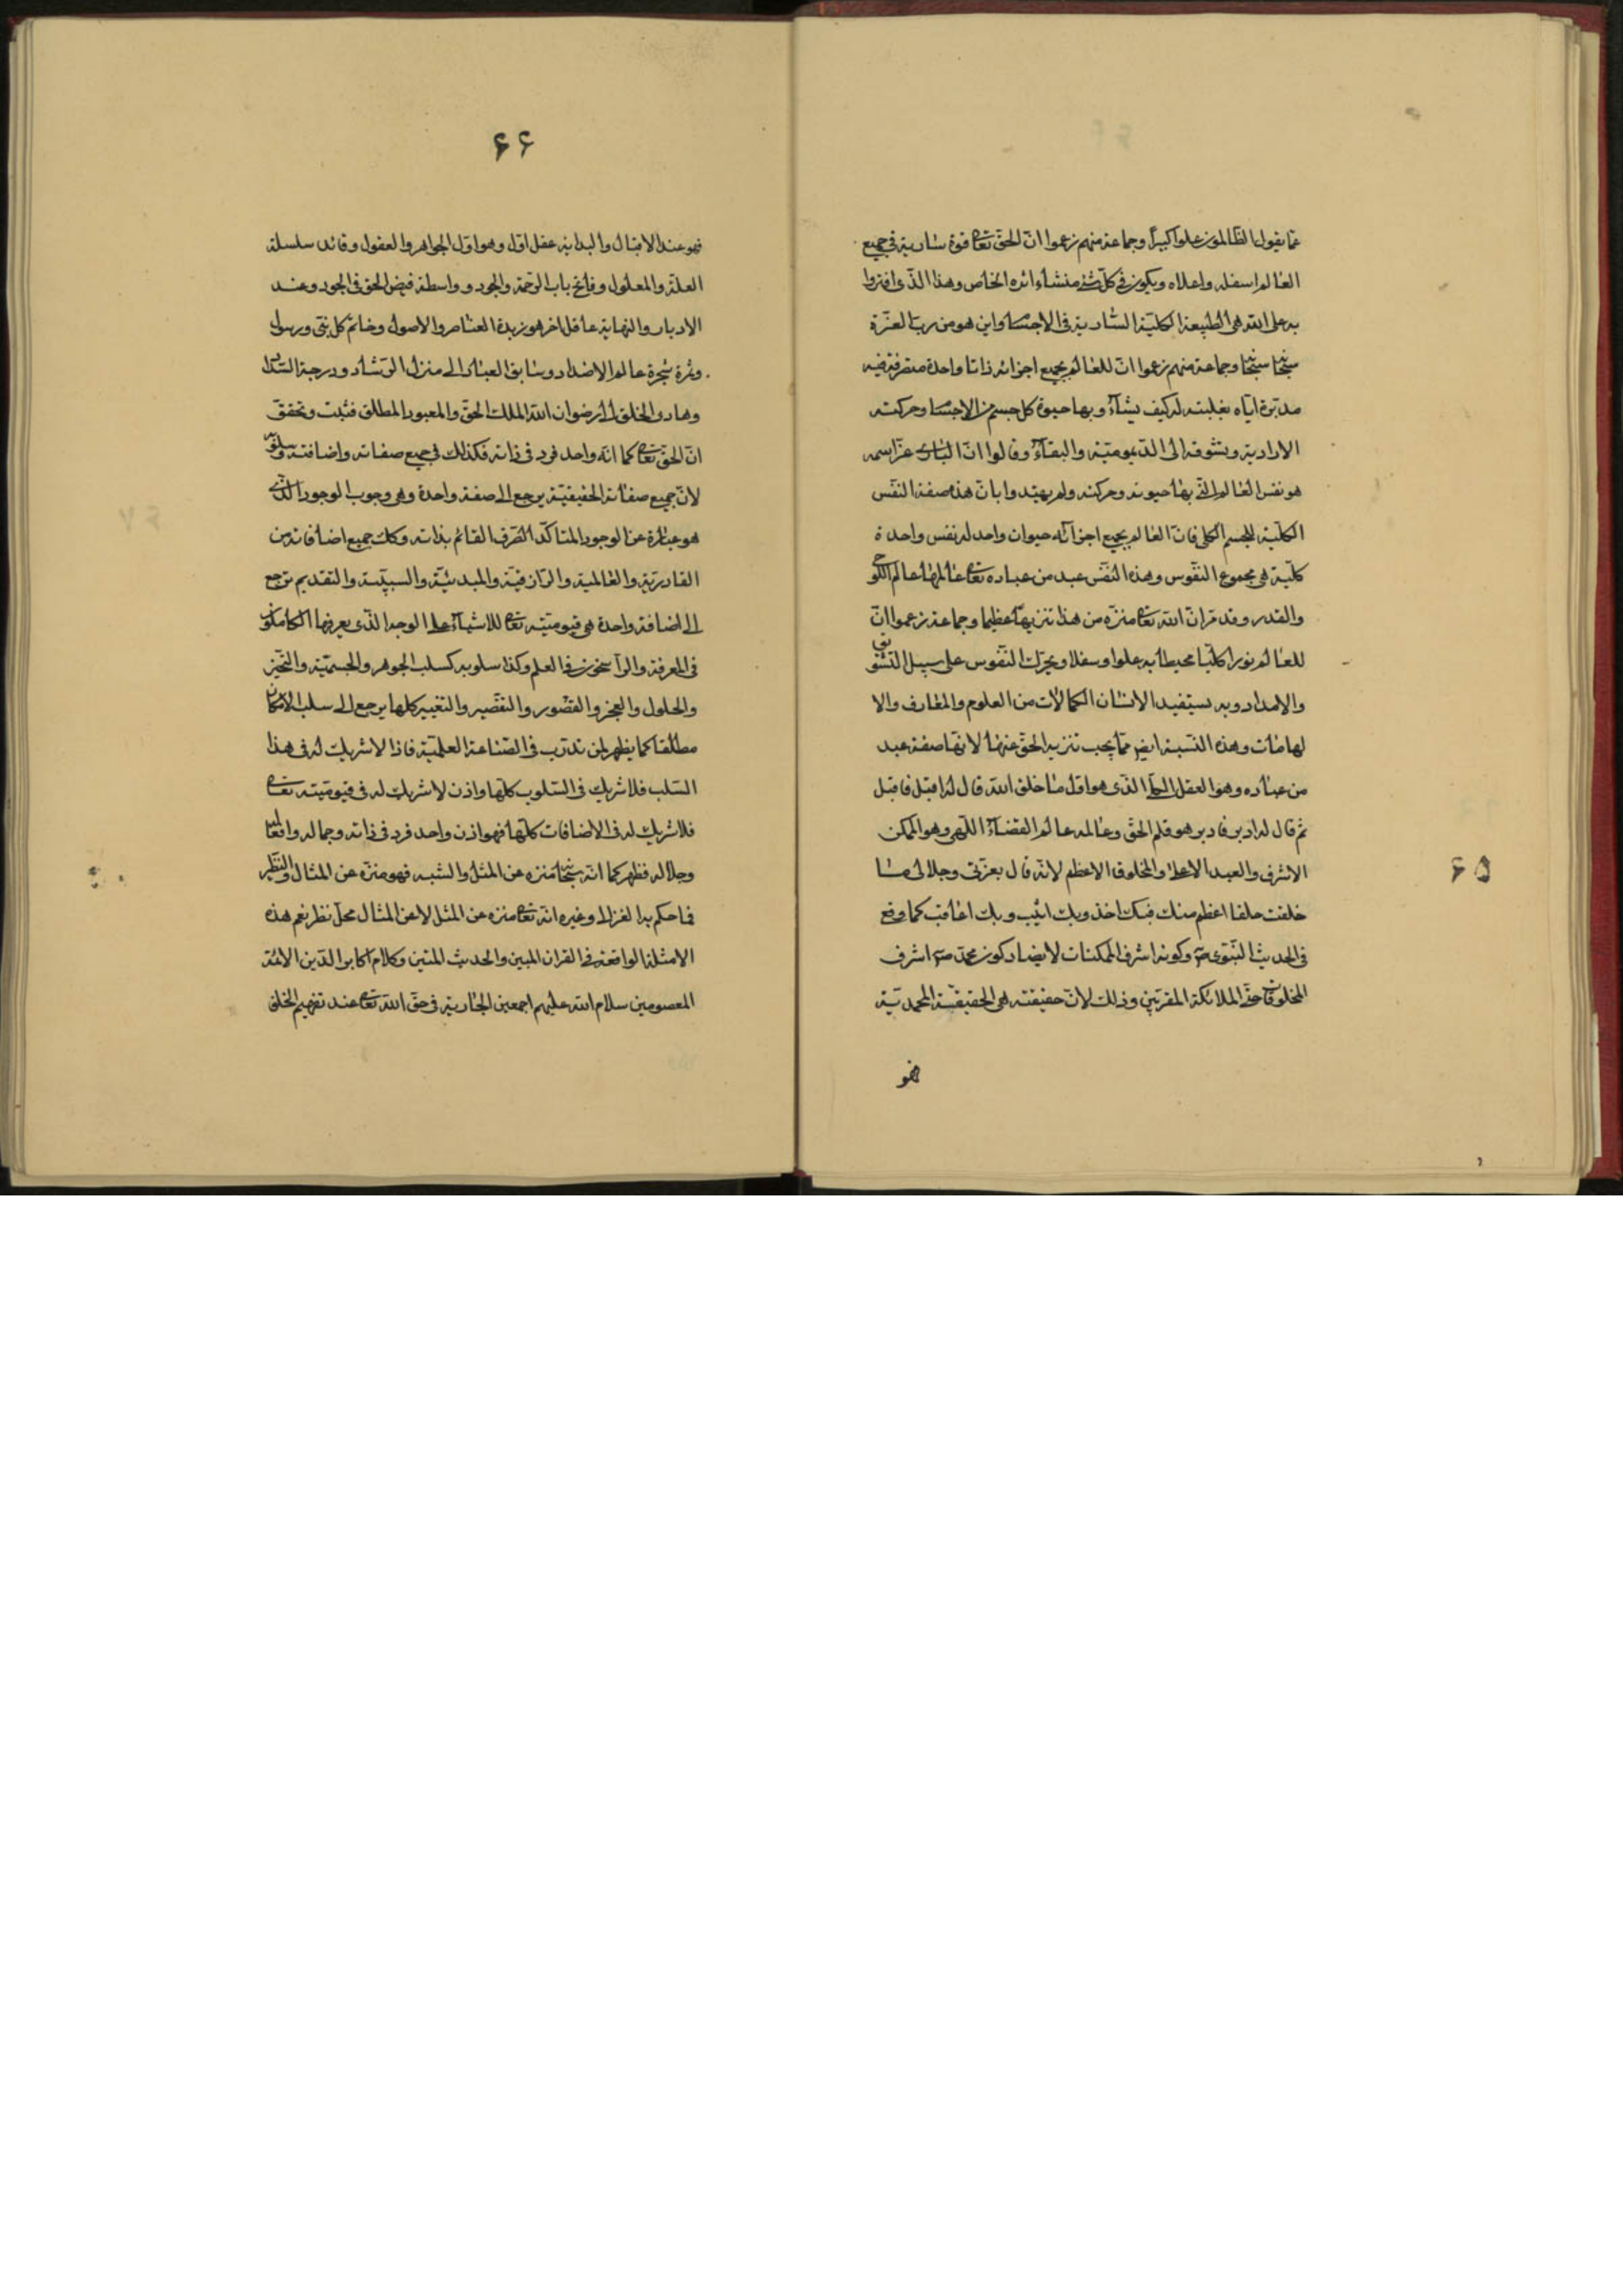 ۶۵
عما يقول الظالمون علوا كبيرا وجماعة منهم زعموا ان الحق تعا قوة سارية في جميع
العالم اسفله واعلاه ويكون في كل شئ منشاء اثره الخاص وهذا الذى افتروا
به على الله هى الطبيعة الكلية السارية فى الاجسا واين هو من رب العزة
سبحا سبحا وجماعة منهم زعموا ان للعالم بجميع اجزائه ذاتا واحدة متصرفة فيه
مدبرة اياه بغلبته له كيف يشاء وبها حيوة كل جسم من الاجسا وحركته
الارادية وتشوقه الى الديمومية والبقاء وقالوا ان البارى عز اسمه
هو نفس العالم التى بها حيوته وحركته ولم يهتدوا بان هذه صفة النفس
الكلية للجسم الكلى فان العالم بجميع اجزائه حيوان واحد له نفس واحدة
كلية هى مجموع النفوس وهذه النفس عبد من عباده تعا عالمها عالم اللوح
والقدر وقد مر ان الله تعا منزه من هذا تنزيها عظيما وجماعة زعموا ان
للعالم نورا كليا محيطا به علوا وسفلا ويحرك النفوس على سبيل التشويق
والامداد وبه يستفيد الانسان الكمالات من العلوم والمعارف والا
لهامات وهذه النسبة ايض مما يجب تنزيه الحق عنها لانها صفة عبد
من عباده وهو العقل الكلى الذى هو اول ما خلق الله قال له اقبل فاقبل
ثم قال له ادبر فادبر هو قلم الحق وعالمه عالم القضاء الالهى وهو الممكن
الاشرف والعبد الاعلى والمخلوق الاعظم لانه قال بعزتى وجلالى ما
خلقت خلقا اعظم منك فبك اخذ وبك اثيب وبك اعاقب كما وقع
فى الحديث النبوى ص وكونه اشرف الممكنات لا يضاد كون محمد ص اشرف
المخلوقات حتى الملائكة المقربين وذلك لان حقيقته هى الحقيقة المحمدية
فهو
۶۶
فهو عند الاقبال والبداية عقل اول وهو اول الجواهر والعقول وقائد سلسلة
العلة والمعلول وفاتح باب الرحمة والجود وواسطة فيض الحق فى الجود وعند
الادبار والنهاية عاقل اخر هو زبدة العناصر والاصول وخاتم كل نبى ورسول
وثمرة شجرة عالم الاضداد وسابق العباد الى منزل الرشاد ودرجة السداد
وهادى الخلق الى رضوان الله الملك الحق والمعبود المطلق فثبت وتحقق
ان الحق تعا كما انه واحد فرد فى ذاته فكذلك فى جميع صفاته واضافته وسلوبه
لان جميع صفاته الحقيقية يرجع الى صفة واحدة وهى وجوب الوجود الذى
هو عبارة عن الوجود المتاكد الصرف القائم بذاته وكك جميع اضافاته من
القادرية والعالمية والرازقية والمبدئية والسببية والتقديم ترجع
الى اضافة واحدة هى قيوميته تعا للاشياء على الوجه الذى يعرفها الكاملون
فى المعرفة والراسخون فى العلم وكذا سلوبه كسلب الجوهر والجسمية والتحيز
والحلول والعجز والقصور والتقصير والتغيير كلها يرجع الى سلب الامكان
مطلقا كما يظهر لمن تدرب فى الصناعة العلمية فاذا لا شريك له فى هذا
السلب فلا شريك فى السلوب كلها واذن لا شريك له فى قيوميته تعا
فلا شريك له فى الاضافات كلها فهو اذن واحد فرد فى ذاته وجماله وافعاله
وجلاله فظهر كما انه سبحا منزه عن المثل والشبه فهو منزه عن المثال والنظير
فما حكم به الغزالى وغيره انه تعا منزه عن المثل لا عن المثال محل نظر نعم هذه
الامثلة الواقعة فى القران المبين والحديث المتين وكلام اكابر الدين الائمة
المعصومين سلام الله عليهم اجمعين الجارية فى حق الله تعا عند تفهيم الخلق